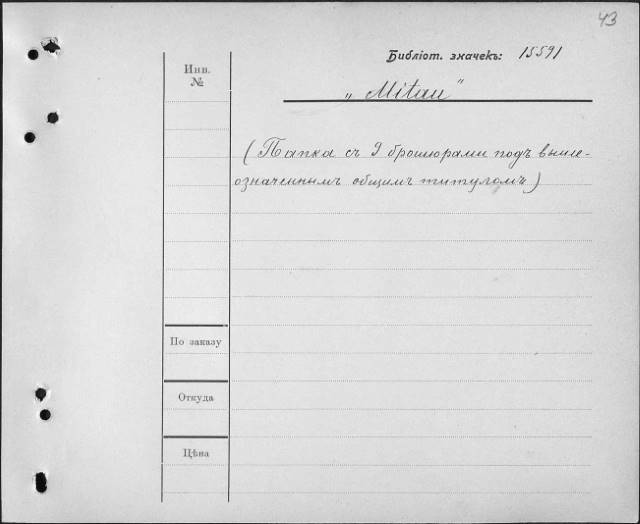 43
Библіот. значекъ: 15591
Инв.
№
„Mitau“
(Папка съ 9 брошюрами подъ выше-
означеннымъ общимъ титуломъ)
По заказу
Откуда
Цѣна